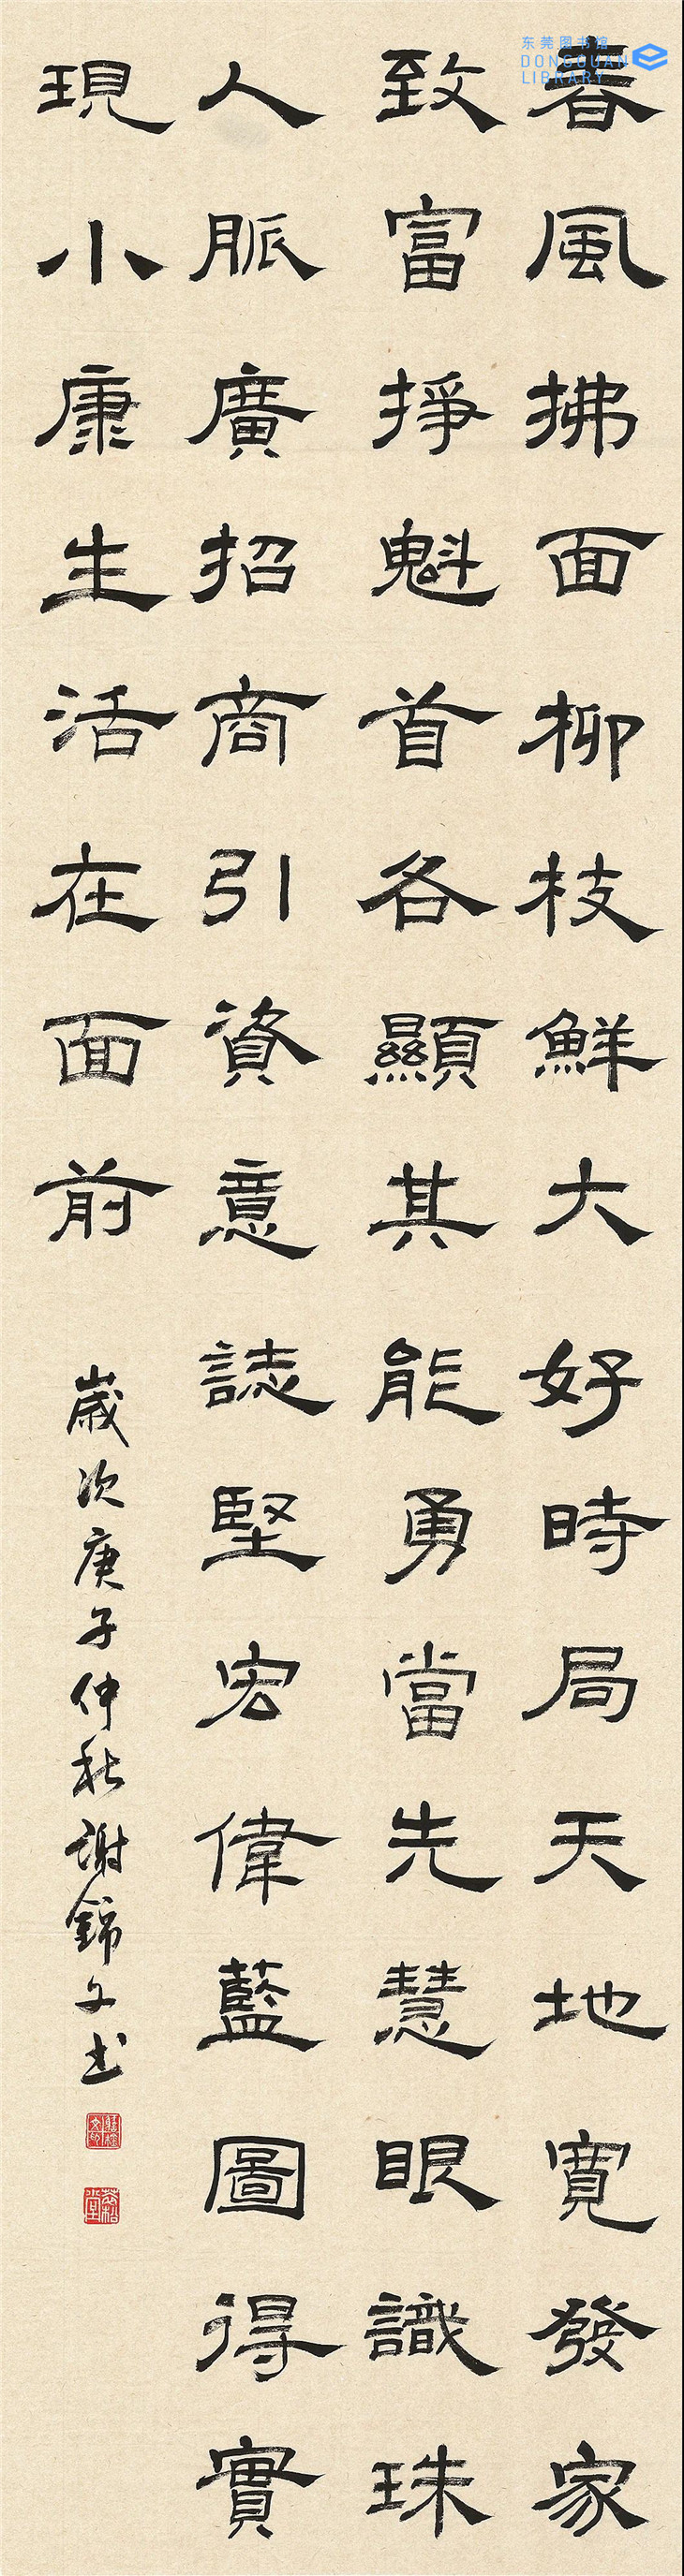 春風拂面柳枝鮮大好時局天地寬發家
致富掙魁首各顯其能勇當先慧眼識珠
人脈廣招商引資意誌堅宏偉藍圖得實
現小康生活在面前
歲次庚子仲秋謝錦文书
东莞图书馆
DONGGUAN
LIBRARY